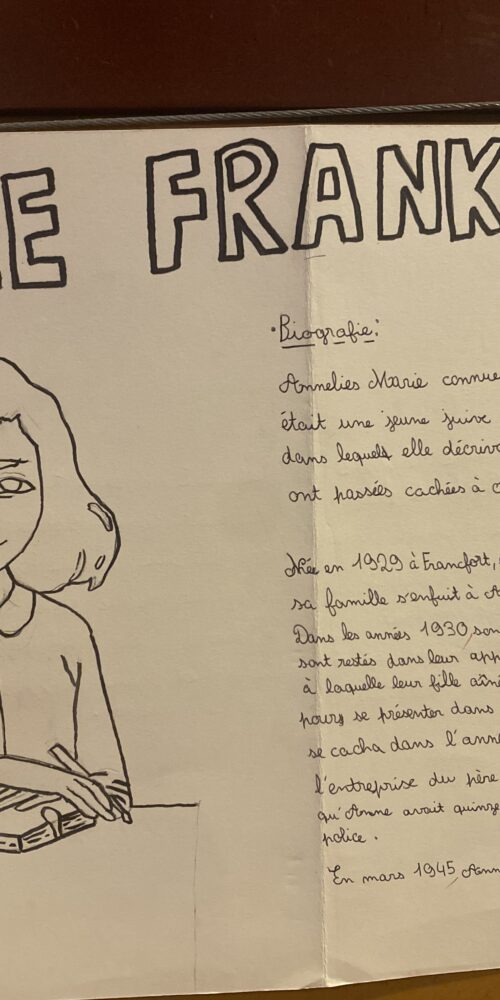 E FRANK
•Biografie:
Annelies Marie connue
était une jeune juive
dans lequels elle décriv
ont passés cachées à
Née en 1929 à Francfort,
sa famille s'enfuit à A
Dans les années 1930, son
sont restés dans leur app
à laquelle leur fille aîn
pours se présenter dans
se cacha dans l'ann
l'entreprise du père
qu'Anne avait quinze
police.
En mars 1945, Ann